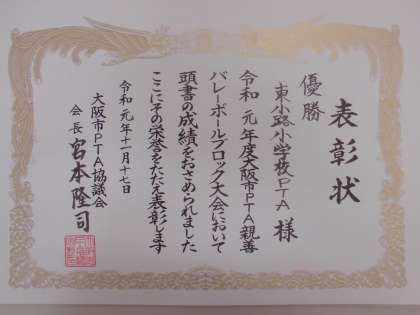 表彰状
優勝
東小路小学校PTA様
令和元年度大阪市PTA親善
バレーボールブロック大会において
頭書の成績をおさめられました
ここにその栄誉をたたえ表彰します
令和元年十一月十七日
大阪市PTA協議会
会長 宮本隆司